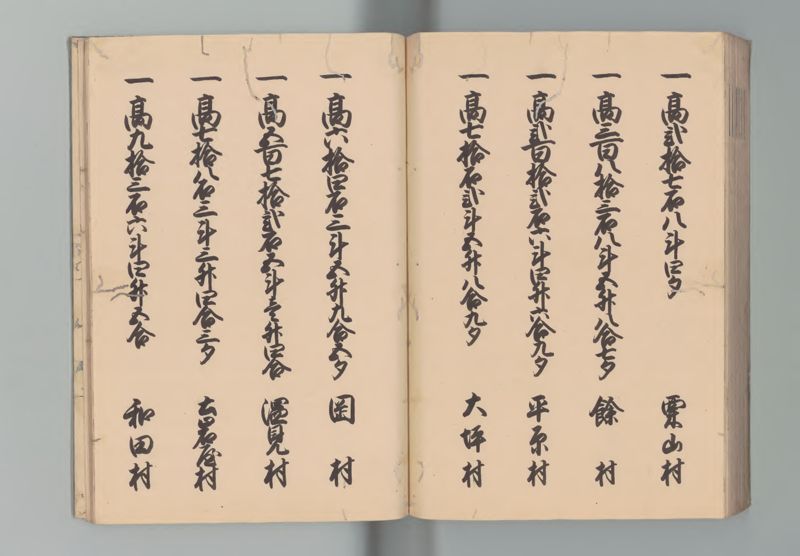 一高弐拾七石八斗四夕 栗山村
一高三百八拾三石八斗五升八合七夕 餘村
一高弐百拾弐石六斗四升六合九夕 平原村
一高七拾石弐斗五升八合九夕 大坪村
一高六拾四石三斗五升九合五夕 岡村
一高五百七拾弐石五斗壱升四合 湿見村
一高七拾八石三斗三升四合三夕 古岩屋村
一高九拾三石六斗四升五合 和田村